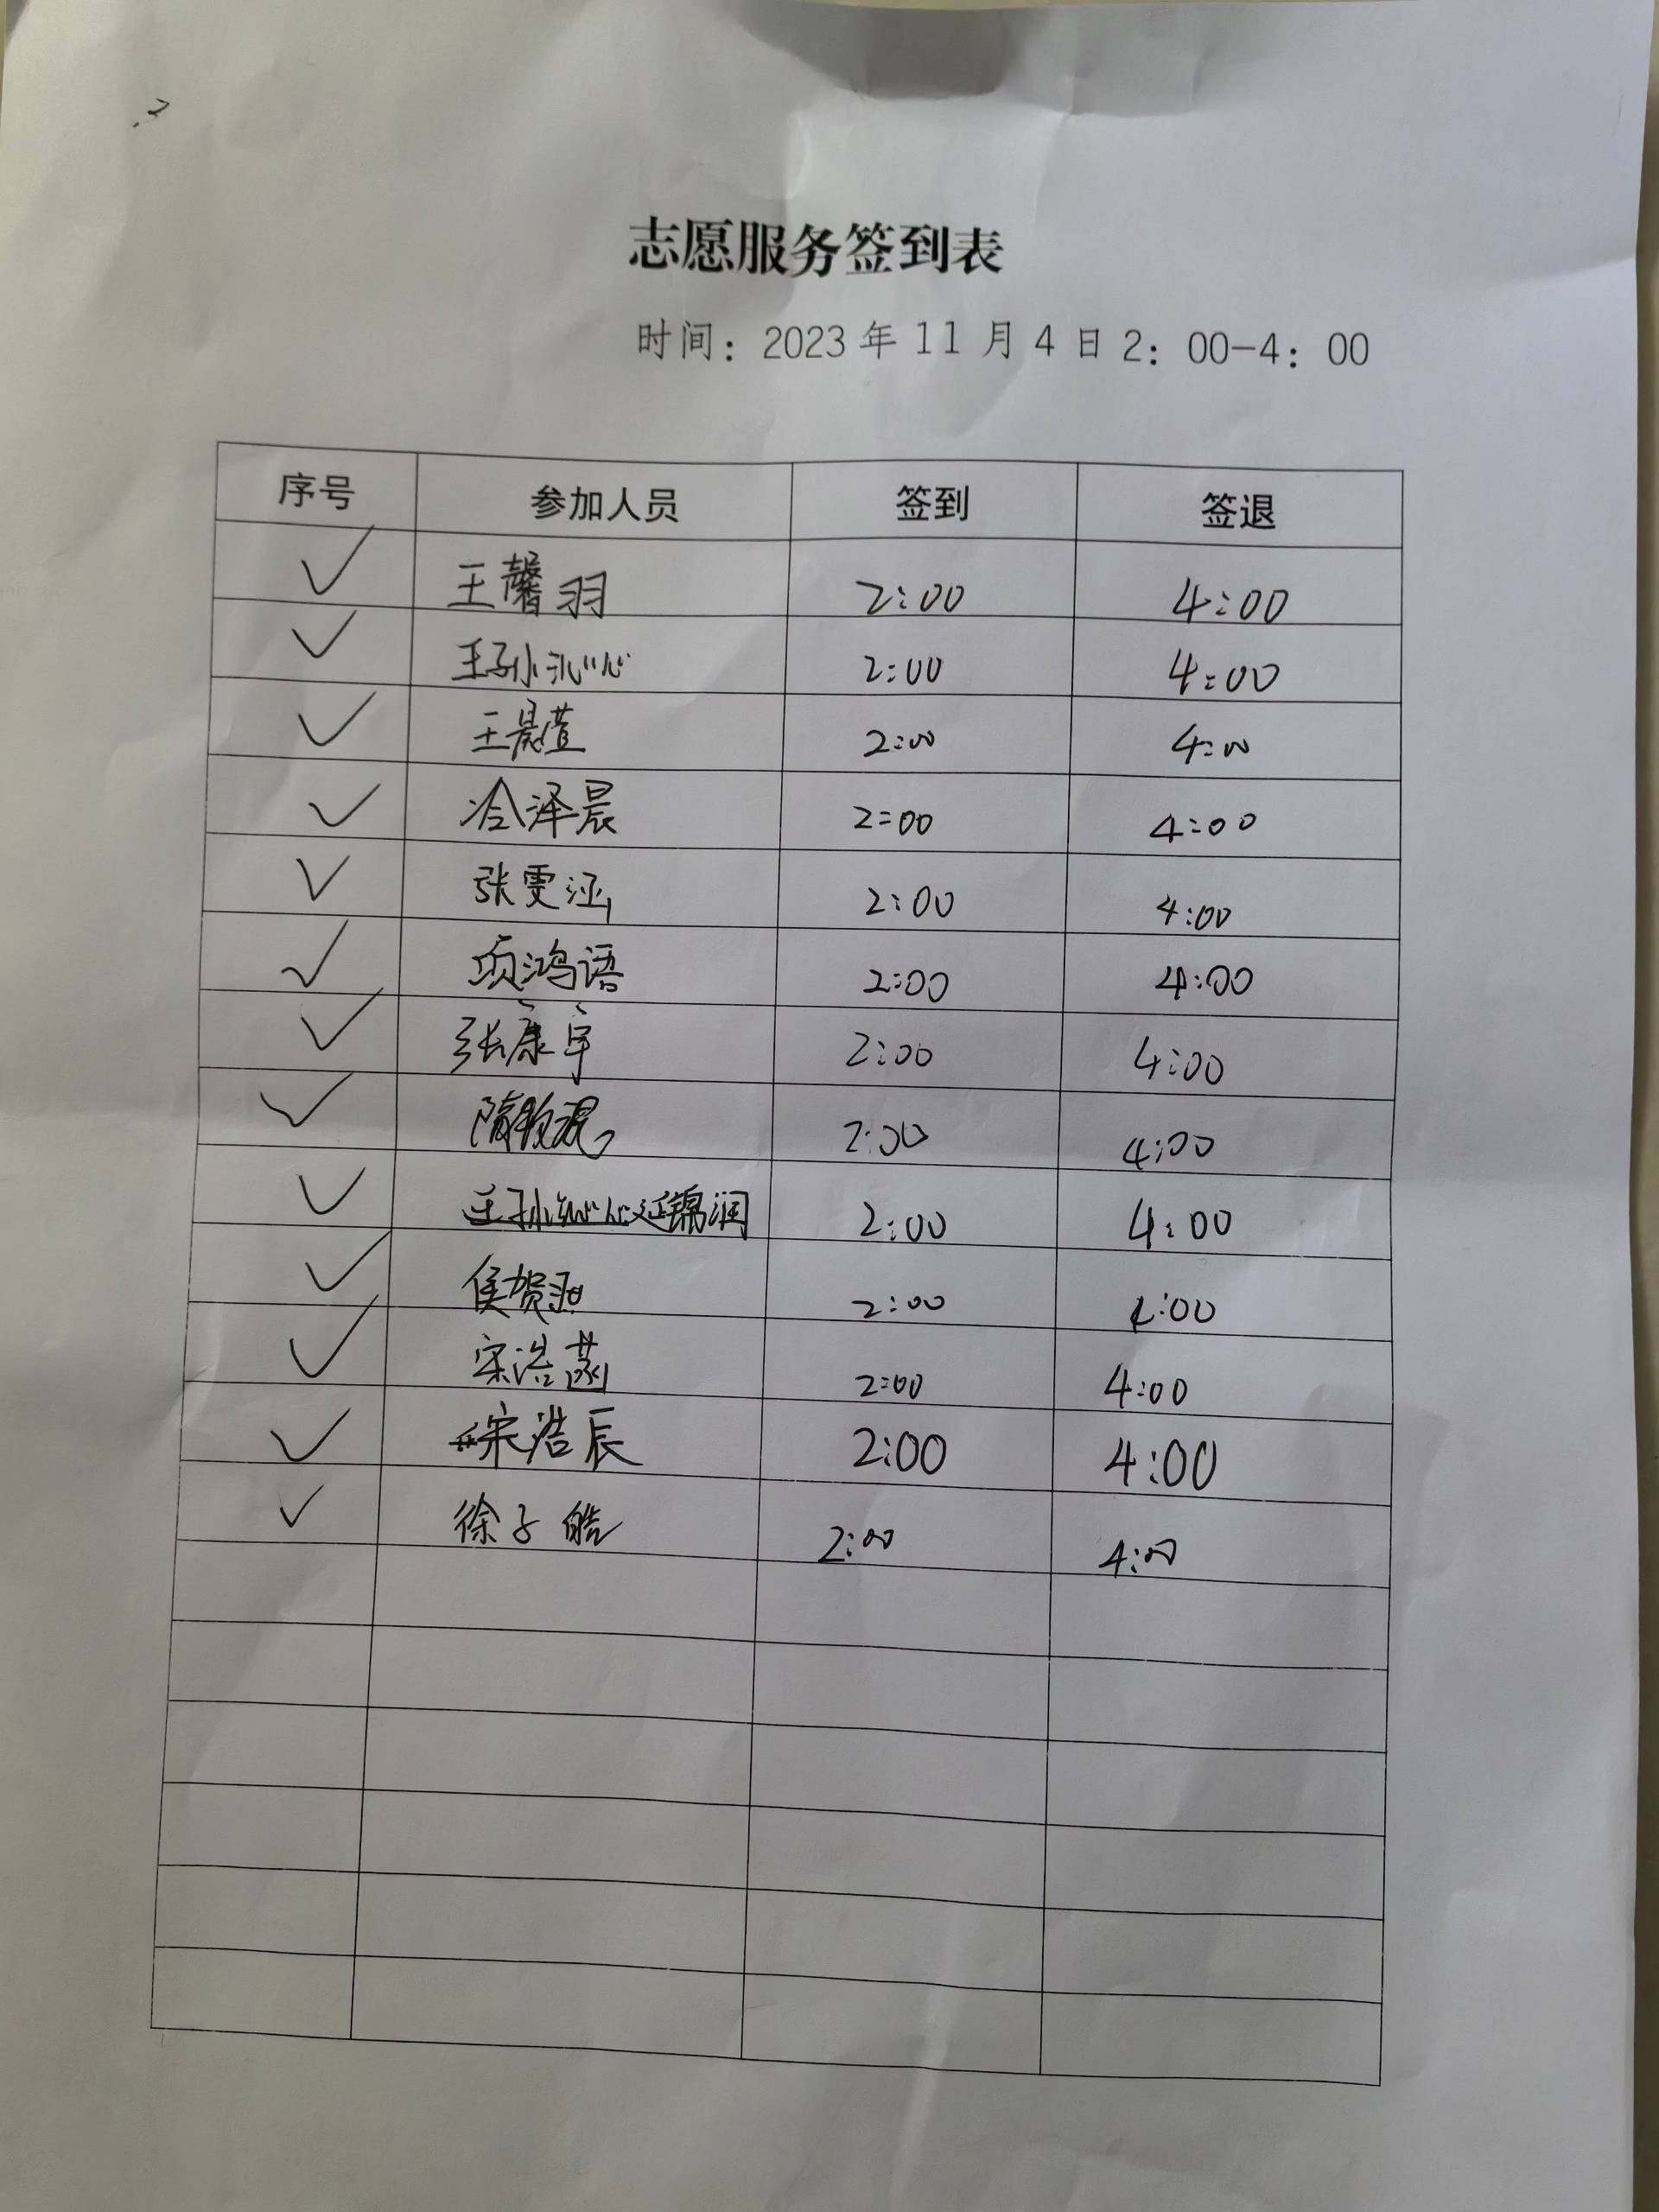 2
志愿服务签到表
时间：2023年11月4日2：00-4：00
序号 参加人员 签到 签退
✓ 王馨羽 2:00 4:00
✓ 王孙沁心 2:00 4:00
✓ 王晨萱 2:00 4:00
✓ 冷泽晨 2:00 4:00
✓ 张雯涵 2:00 4:00
✓ 项鸿语 2:00 4:00
✓ 张康宇 2:00 4:00
✓ 2:00 4:00
✓ 锦润 2:00 4:00
✓ 侯贺 2:00 4:00
✓ 宋浩菡 2:00 4:00
✓ 宋浩辰 2:00 4:00
✓ 徐子皓 2:00 4:00